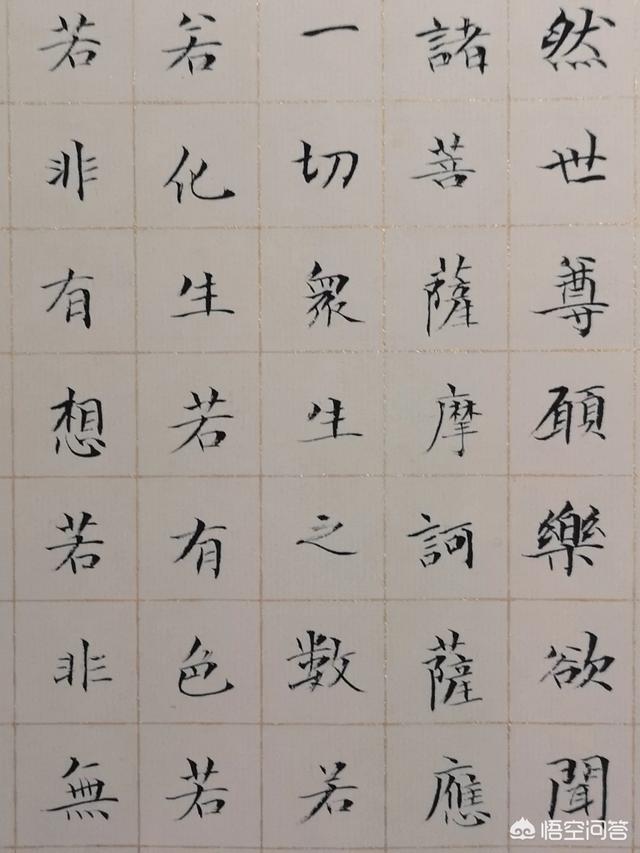 然世尊願樂欲聞
諸菩薩摩訶薩應
一切眾生之數若
若化生若有色若
若非有想若非無
悟空问答